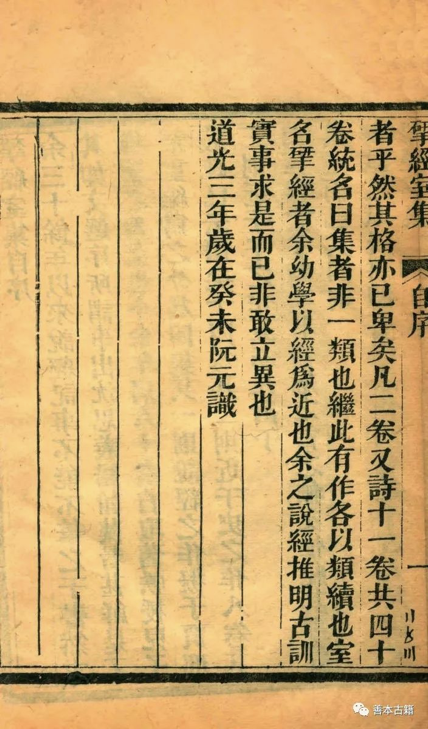 揅經室集 自序 一
者乎然其格亦已卑矣凡二卷又詩十一卷共四十
卷統名曰集者非一類也繼此有作各以類續也室
名揅經者余幼學以經爲近也余之說經推明古訓
實事求是而已非敢立異也
道光三年歲在癸未阮元識
善本古籍